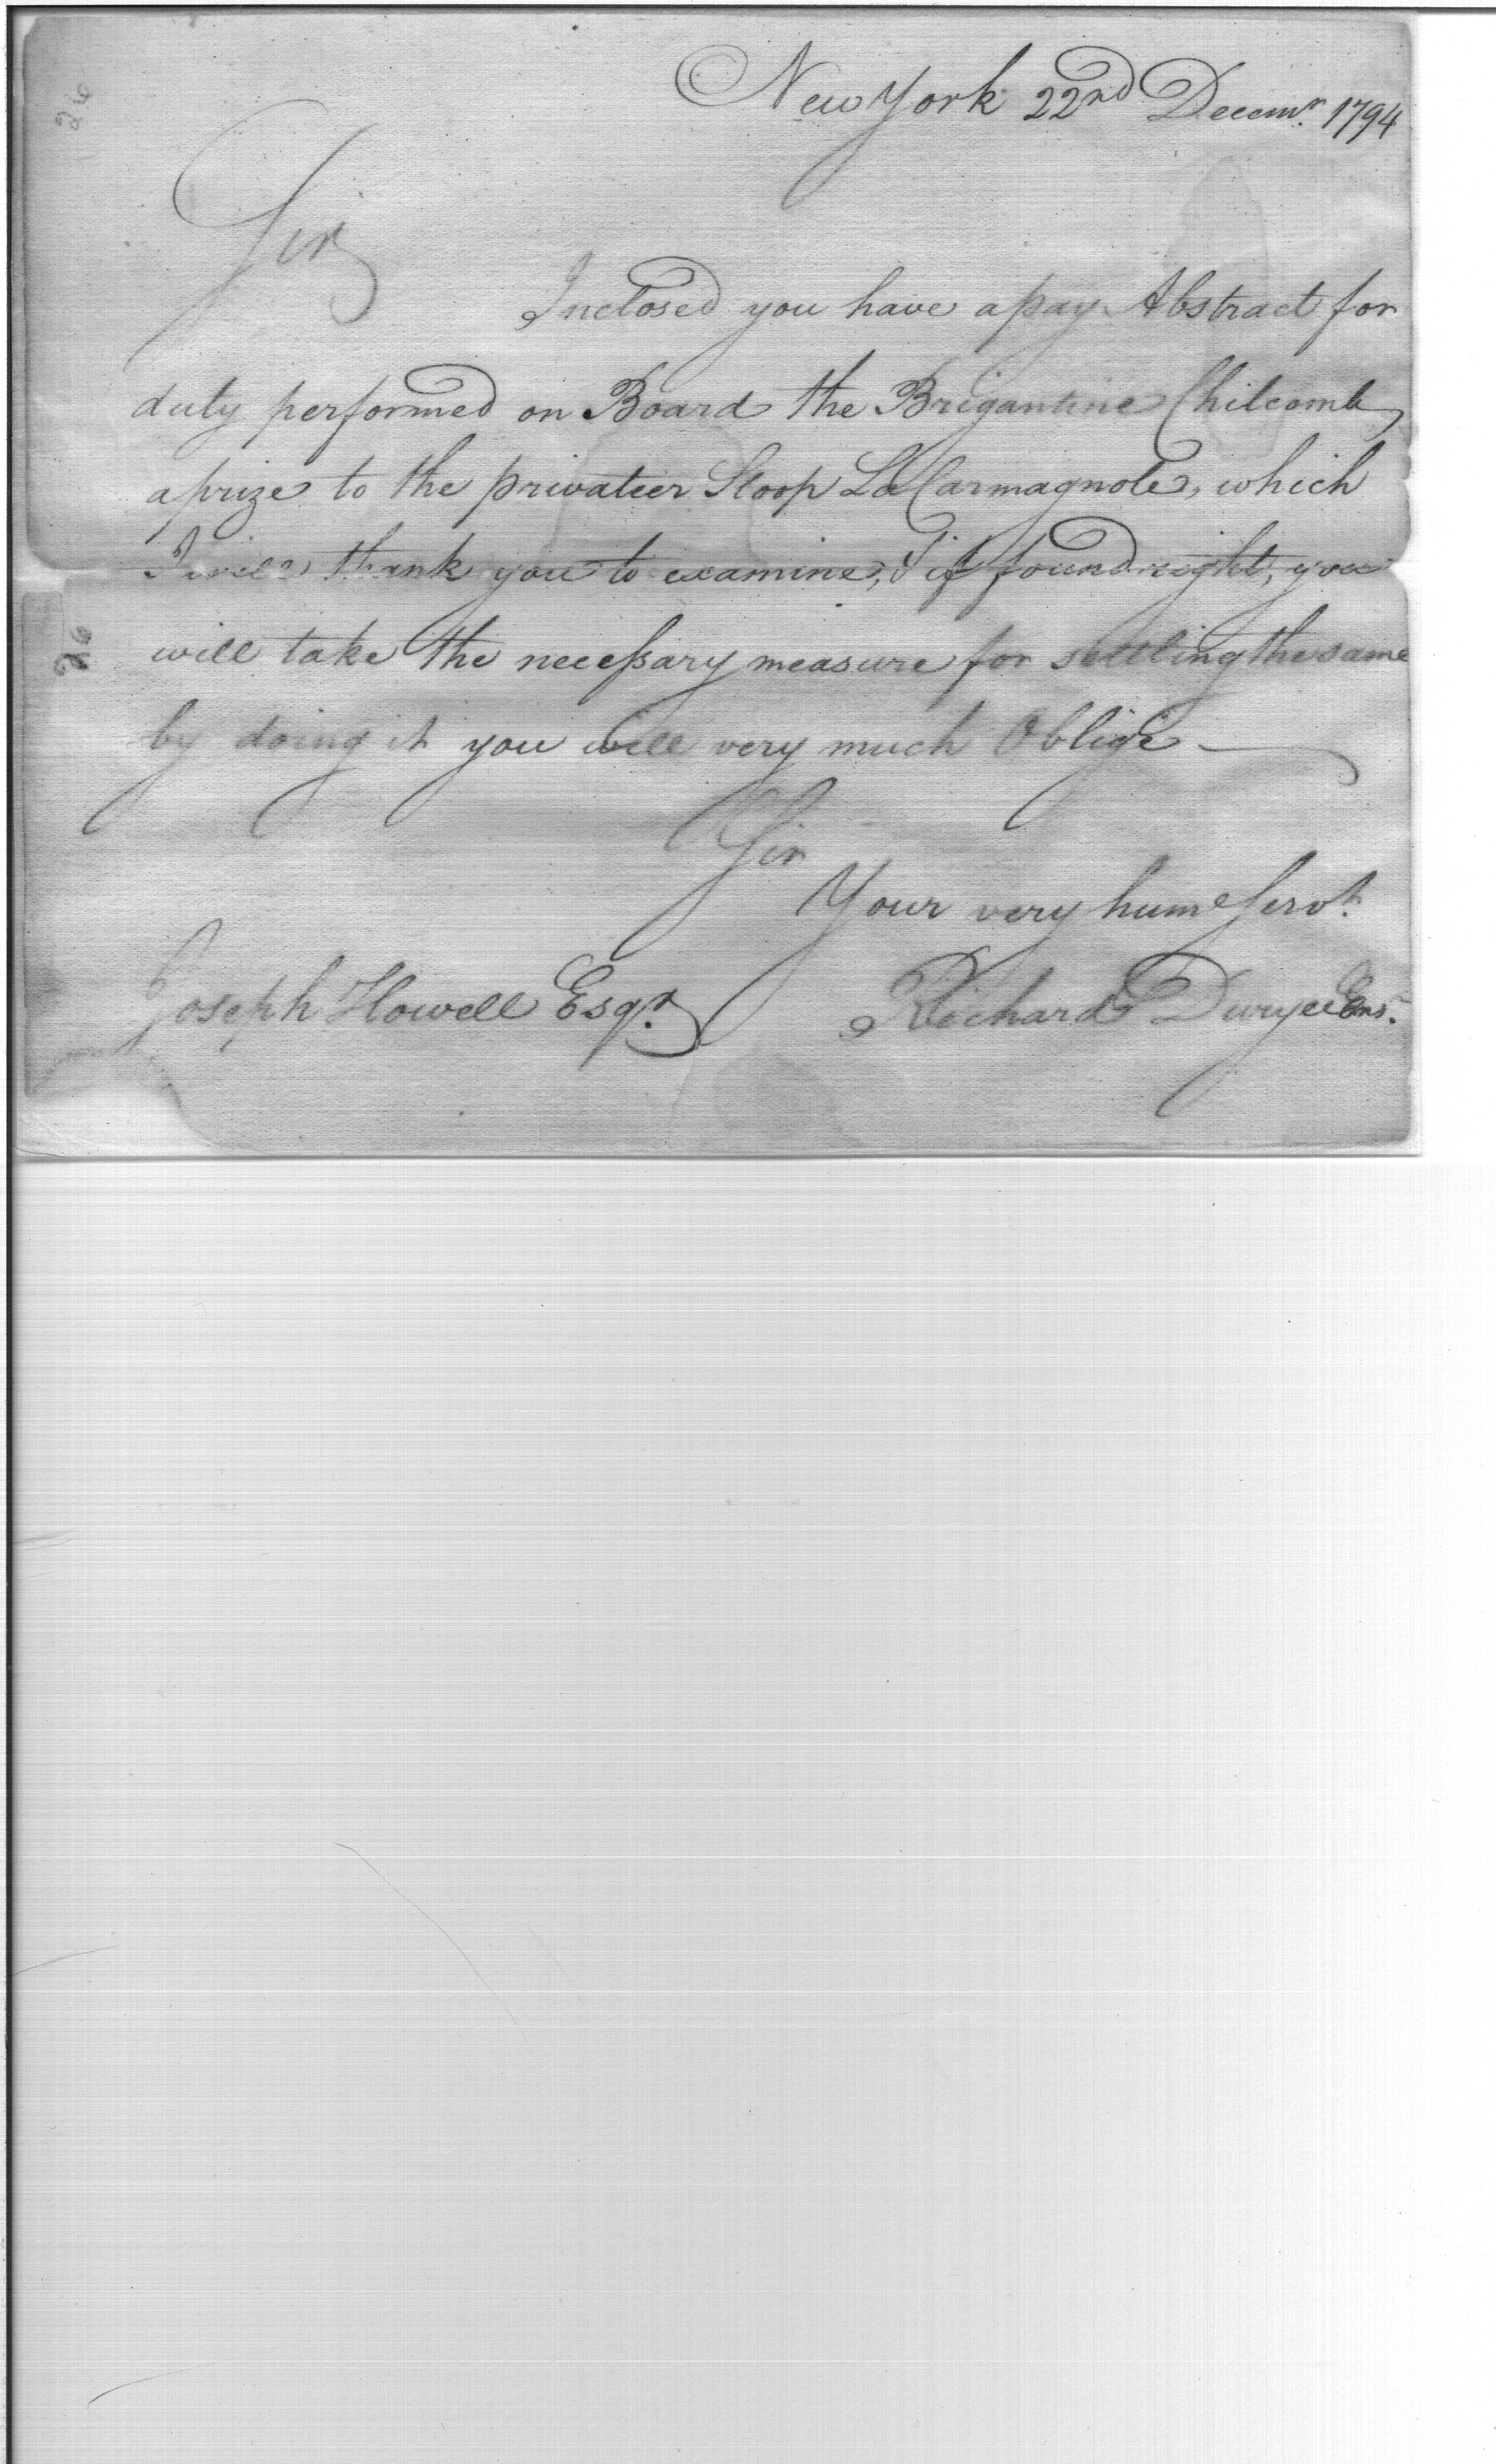 New York 22nd Decemr. 1794
Sir
Inclosed you have a pay Abstract for
duty performed on Board the Brigantine Chilcomb
a prize to the privateer Sloop La Carmagnole, which
I will thank you to examine, & if found right, you
will take the necessary measure for settling the same
by doing it you will very much Oblige
Sir
Your very humle Servt.
Joseph Howell Esqr. Richard Dwyer Ens.
26
26